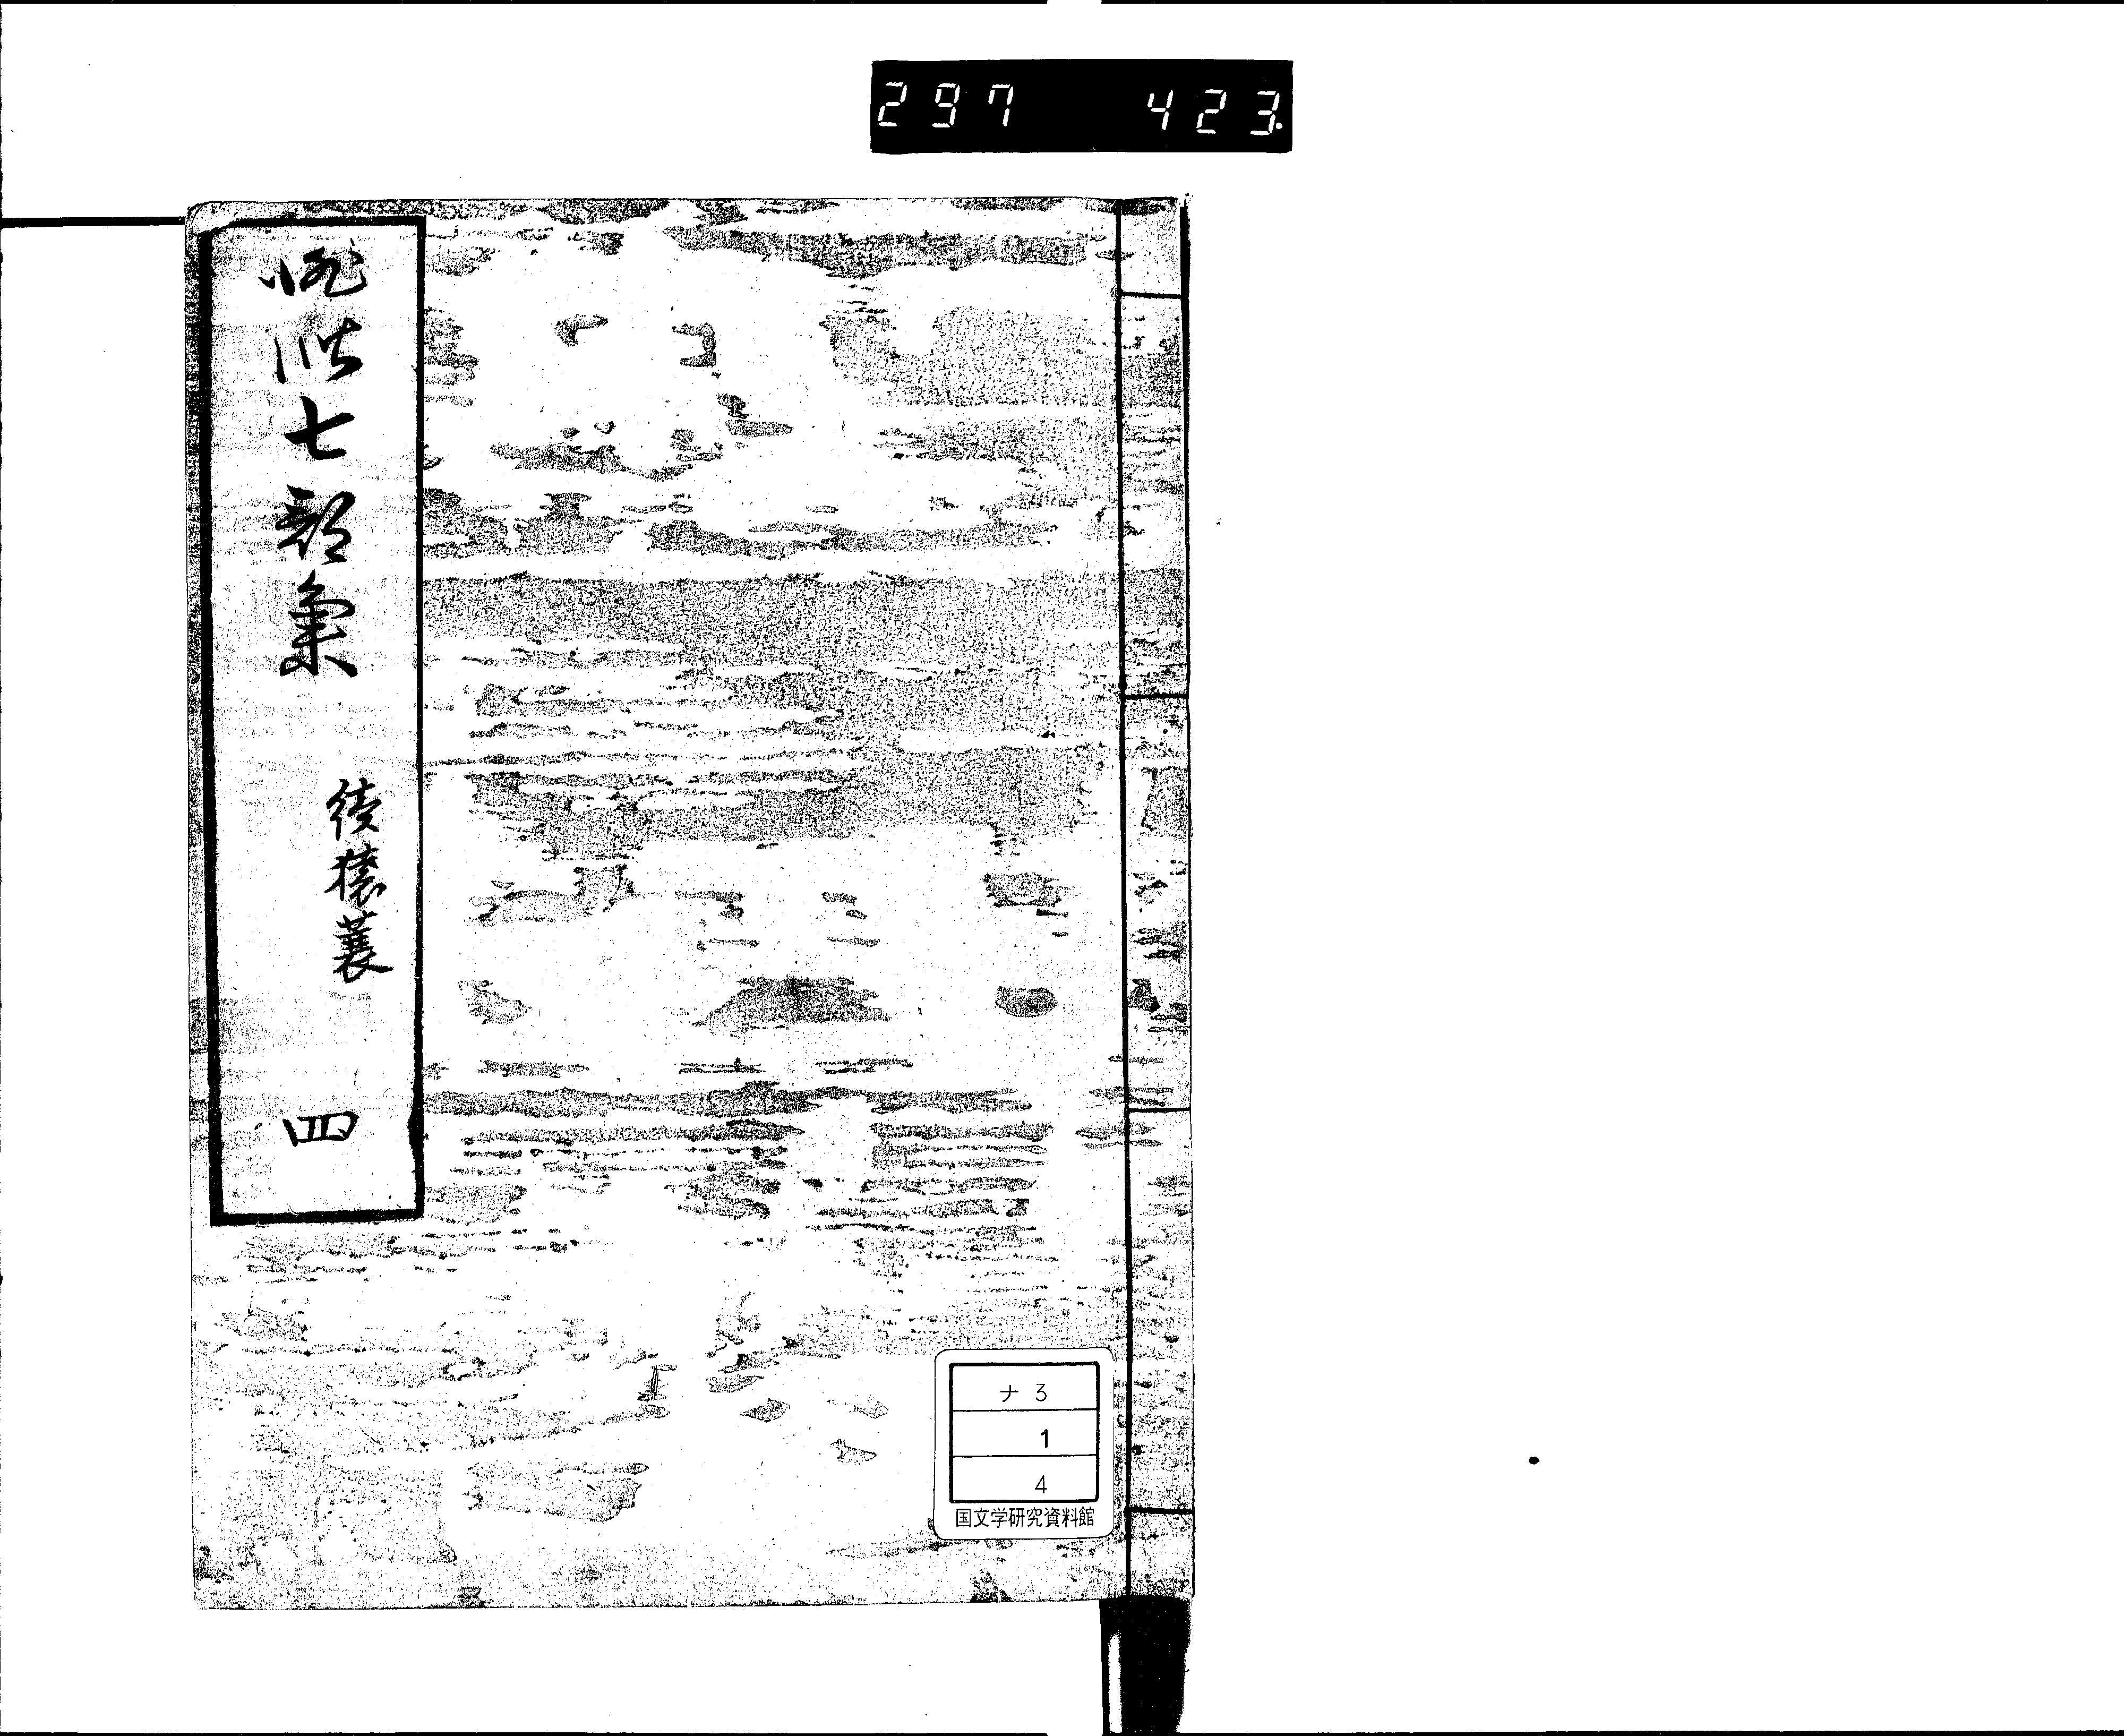 297 423.
俳諧七部集
続猿蓑
四
ナ 3
1
4
国文学研究資料館